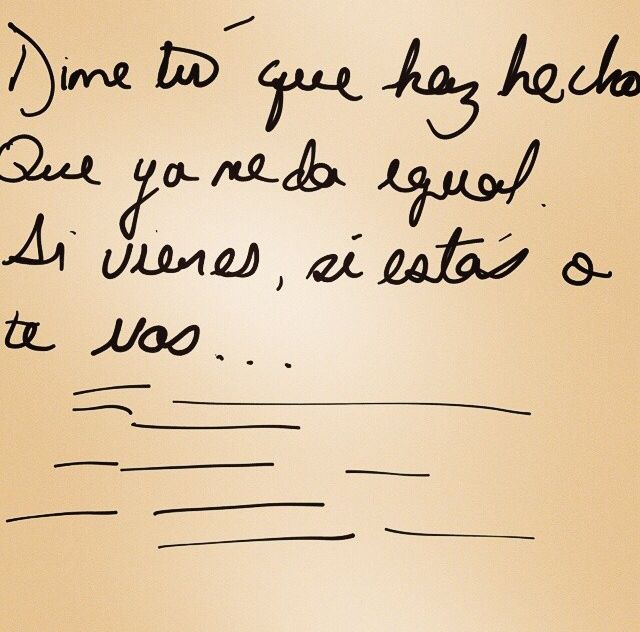 Dime tú que haz hecho
Que ya me da igual.
Si vienes, si estás o
te vas...